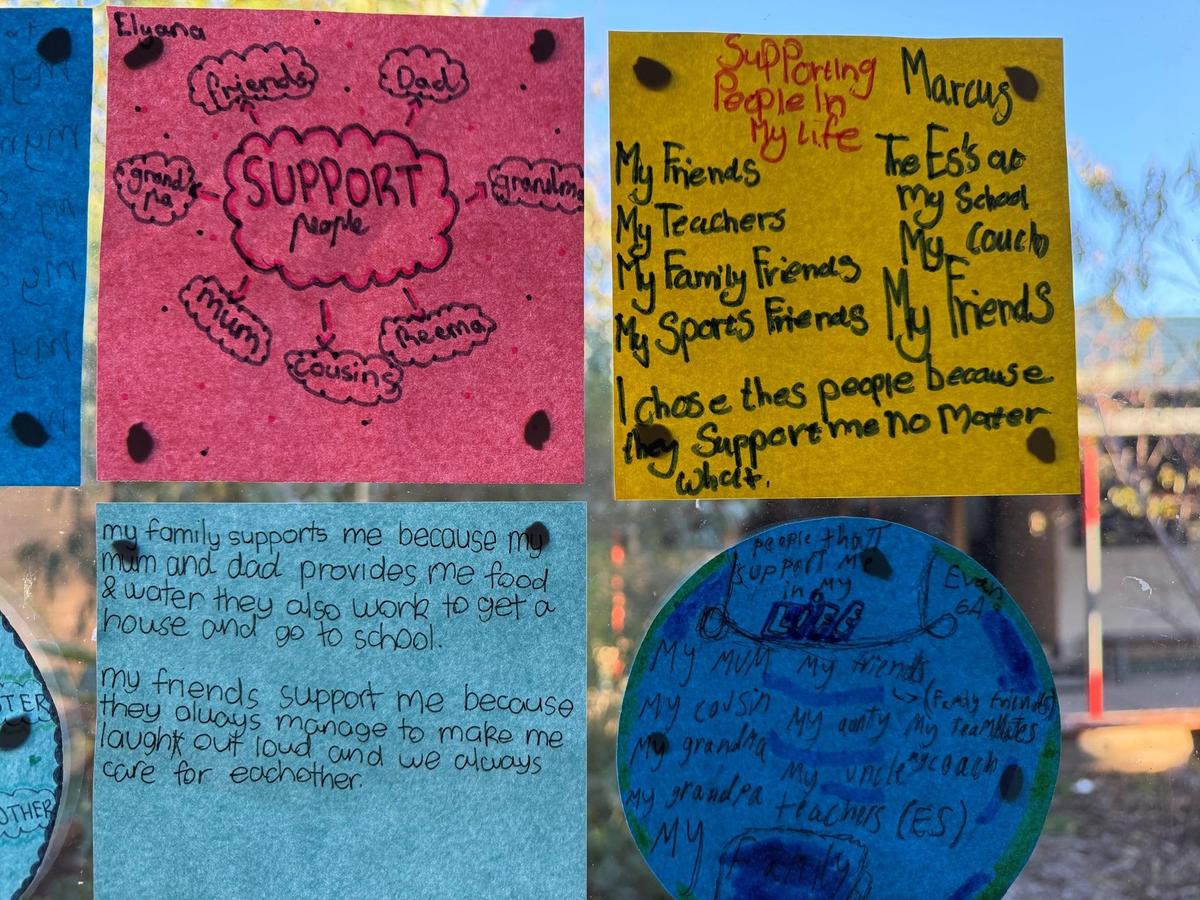 Elyana
friends
Dad
grand
pa
SUPPORT
people
grandma
Mum
cousins
Reema
Supporting
People In
My life
Marcus
My Friends
My Teachers
My Family Friends
My Sports Friends
The Es's at
My School
My Couch
My Friends
I chose thes people because
they Support me no Mater
what.
my family supports me because my
mum and dad provides me food
& water they also work to get a
house and go to school.
my friends support me because
they always manage to make me
laugh out loud and we always
care for eachother.
people thaT
support me
in my
LIFE
Evan
6A
My MUM
My cousin
My grandma
My grandpa
MY
Family
My friends
(Family friends)
My aunty
My Teammates
My uncle
My coach
teachers (ES)
OTHER